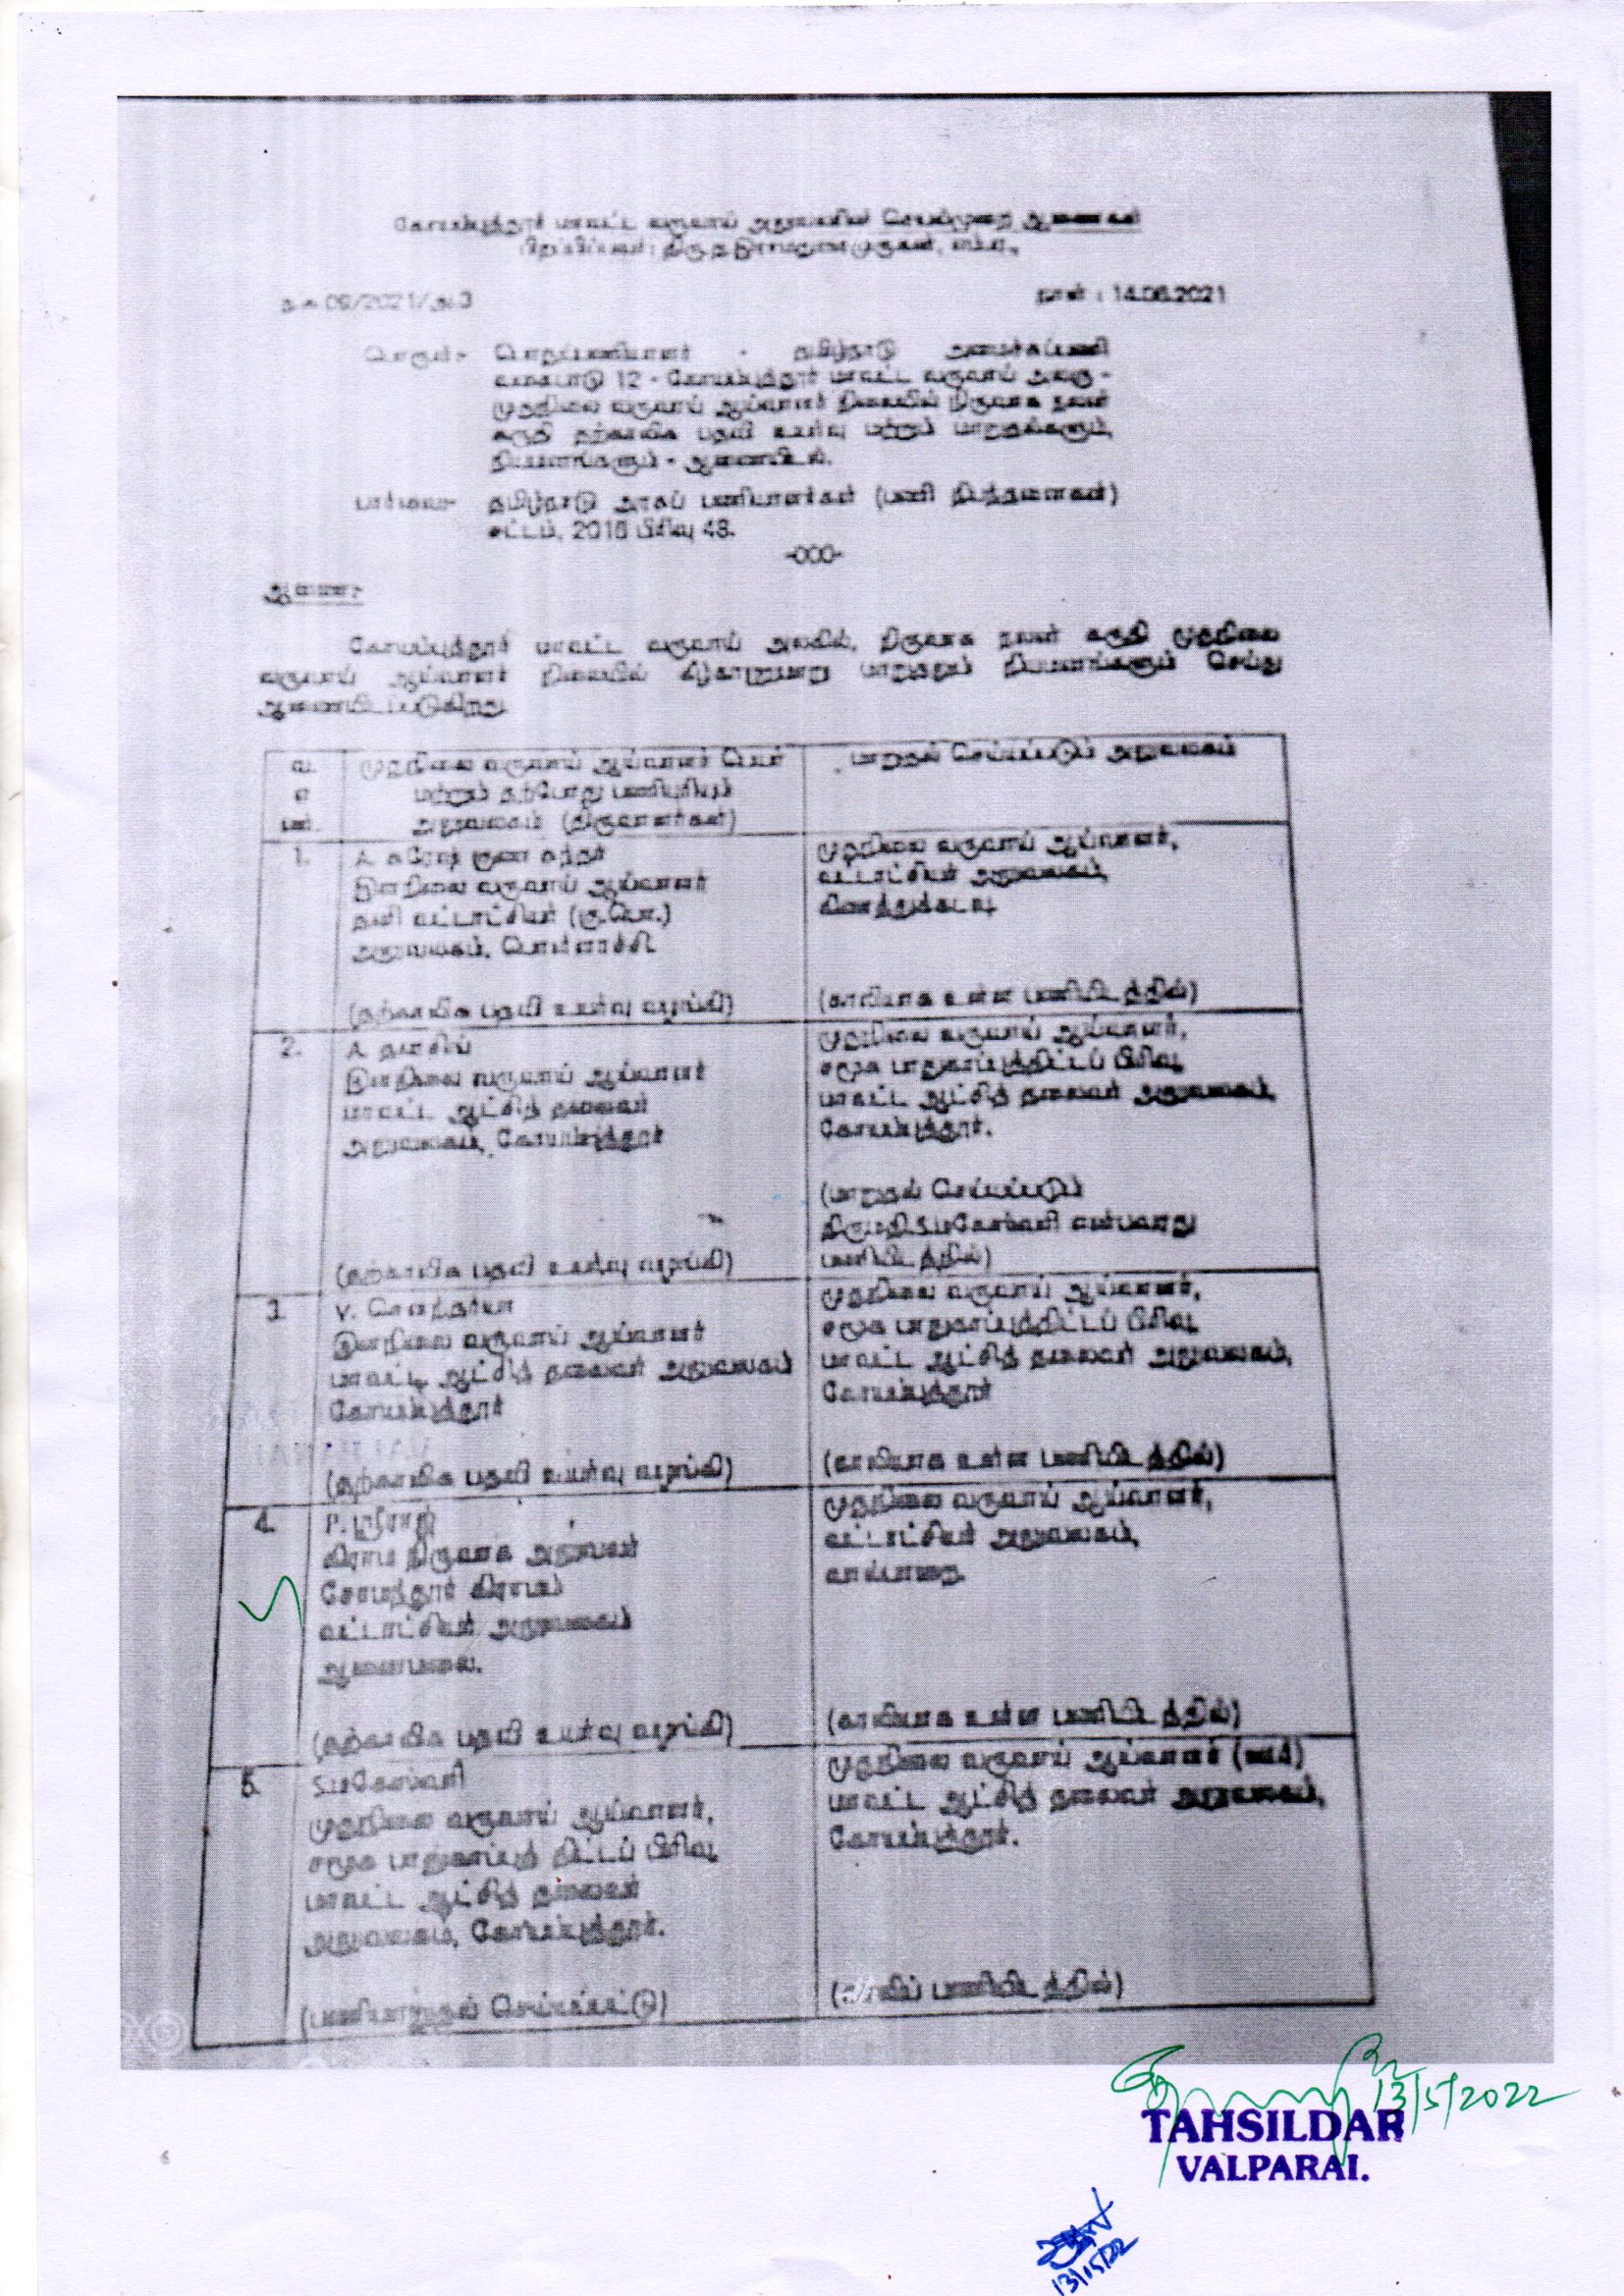 கோயம்புத்தூர் மாவட்ட வருவாய் அலுவலரின் செயல்முறை ஆணைகள்
09/2021/அ3
நாள் : 14.06.2021
பொருள்:- பொதுப்பணியாளர் - தமிழ்நாடு அமைச்சுப்பணி
வகைபாடு 12 - கோயம்புத்தூர் மாவட்ட வருவாய் அலகு -
முதுநிலை வருவாய் ஆய்வாளர் நிலையில் நிருவாக நலன்
கருதி தற்காலிக பதவி உயர்வு மற்றும் மாறுதல்களும்,
நியமனங்களும் - ஆணையிடல்.
பார்வை:- தமிழ்நாடு அரசுப் பணியாளர்கள் (பணி நிபந்தனைகள்)
சட்டம், 2016 பிரிவு 48.
-000-
ஆணை:-
கோயம்புத்தூர் மாவட்ட வருவாய் அலகில், நிருவாக நலன் கருதி முதுநிலை
வருவாய் ஆய்வாளர் நிலையில் கீழ்காணுமாறு மாறுதலும் நியமனங்களும் செய்து
ஆணையிடப்படுகிறது.
வ.
எ
ண்.
முதுநிலை வருவாய் ஆய்வாளர் பெயர்
மற்றும் தற்போது பணிபுரியும்
அலுவலகம் (திருவாளர்கள்)
மாறுதல் செய்யப்படும் அலுவலகம்
1.
A. சுரேஷ் குண சுந்தர்
இளநிலை வருவாய் ஆய்வாளர்
தனி வட்டாட்சியர் (கு.பொ.)
அலுவலகம், பொள்ளாச்சி.
(தற்காலிக பதவி உயர்வு வழங்கி)
முதுநிலை வருவாய் ஆய்வாளர்,
வட்டாட்சியர் அலுவலகம்,
கிணத்துக்கடவு
(காலியாக உள்ள பணியிடத்தில்)
2.
A.
இளநிலை வருவாய் ஆய்வாளர்
மாவட்ட ஆட்சித் தலைவர்
அலுவலகம், கோயம்புத்தூர்
(தற்காலிக பதவி உயர்வு வழங்கி)
முதுநிலை வருவாய் ஆய்வாளர்,
சமூக பாதுகாப்புத்திட்டப் பிரிவு
மாவட்ட ஆட்சித் தலைவர் அலுவலகம்,
கோயம்புத்தூர்.
(மாறுதல் செய்யப்படும்
திருமதி.S.மகேஸ்வரி என்பவரது
பணியிடத்தில்)
3.
V. சௌந்தர்யா
இளநிலை வருவாய் ஆய்வாளர்
மாவட்ட ஆட்சித் தலைவர் அலுவலகம்
கோயம்புத்தூர்
(தற்காலிக பதவி உயர்வு வழங்கி)
முதுநிலை வருவாய் ஆய்வாளர்,
சமூக பாதுகாப்புத்திட்டப் பிரிவு
மாவட்ட ஆட்சித் தலைவர் அலுவலகம்,
கோயம்புத்தூர்
(காலியாக உள்ள பணியிடத்தில்)
4.
P. ஸ்ரீராஜ்
கிராம நிருவாக அலுவலர்
கிராமம்
வட்டாட்சியர் அலுவலகம்
ஆனைமலை.
(தற்காலிக பதவி உயர்வு வழங்கி)
முதுநிலை வருவாய் ஆய்வாளர்,
வட்டாட்சியர் அலுவலகம்,
வால்பாறை.
(காலியாக உள்ள பணியிடத்தில்)
5.
S.மகேஸ்வரி
முதுநிலை வருவாய் ஆய்வாளர்,
சமூக பாதுகாப்புத் திட்டப் பிரிவு
மாவட்ட ஆட்சித் தலைவர்
அலுவலகம், கோயம்புத்தூர்.
(பணிமாறுதல் செய்யப்பட்டு)
முதுநிலை வருவாய் ஆய்வாளர்
மாவட்ட ஆட்சித் தலைவர் அலுவலகம்,
கோயம்புத்தூர்.
(காலிப் பணியிடத்தில்)
13/5/2022
TAHSILDAR
VALPARAI.